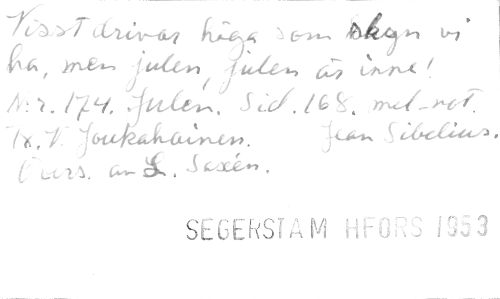 Visst drivor höga som skyn vi
ha, men julen, julen är inne!
Nr. 174. Julen. Sid. 168. mel-not.
Tx. V. Joukahainen. Jean Sibelius.
Övers. av L. Saxén.
SEGERSTAM HFORS 1953